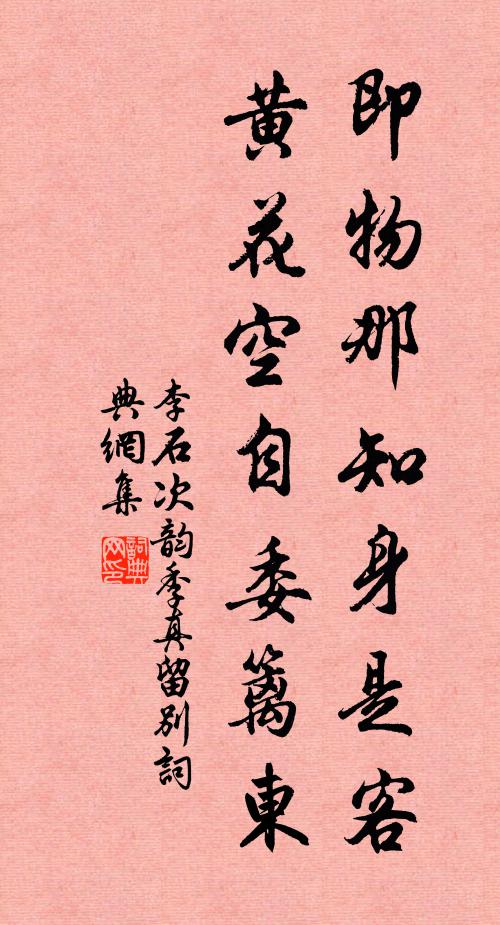 即物那知身是客
黃花空自委籬東
李石次韵季真留別詞
典網集
詞典
网印